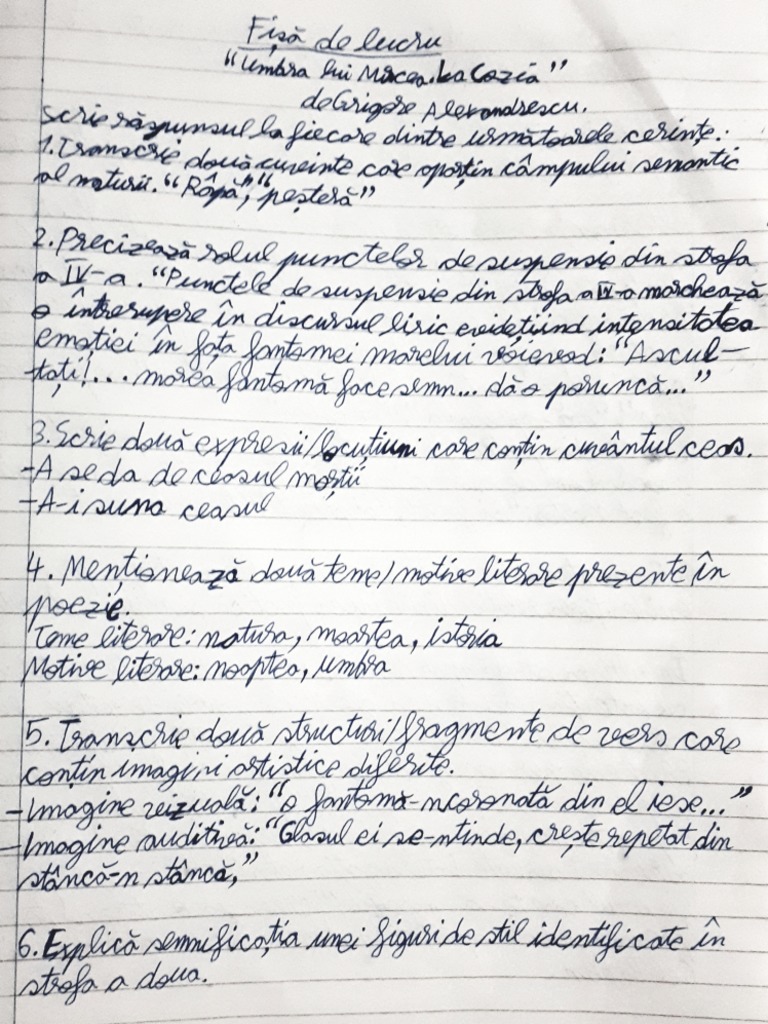 Fișă de lucru
"Umbra lui Mircea. La Cozia"
de Grigore Alexandrescu.
Scrie răspunsul la fiecare dintre următoarele cerințe:
1. Transcrie două cuvinte care aparțin câmpului semantic
al naturii. "Râpă", "peșteră"
2. Precizează rolul punctelor de suspensie din strofa
a IV-a. "Punctele de suspensie din strofa a IV-a marchează
o întrerupere în discursul liric evidețiind intensitatea
emoției în fața fantomei marelui voievod: "Ascul-
tați!... marea fantomă face semn... dă o poruncă..."
3. Scrie două expresii/locuțiuni care conțin cuvântul ceas.
-A se da de ceasul morții
-A-i suna ceasul
4. Menționează două teme/motive literare prezente în
poezie.
Teme literare: natura, moartea, istoria
Motive literare: nooptea, umbra
5. Transcrie două structuri/fragmente de vers care
conțin imagini artistice diferite.
-Imagine vizuală: "o fantomă-ncoronată din el iese..."
-Imagine auditivă: "Glasul ei se-ntinde, crește repetat din
stâncă-n stâncă,"
6. Explică semnificația unei figuri de stil identificate în
strofa a doua.